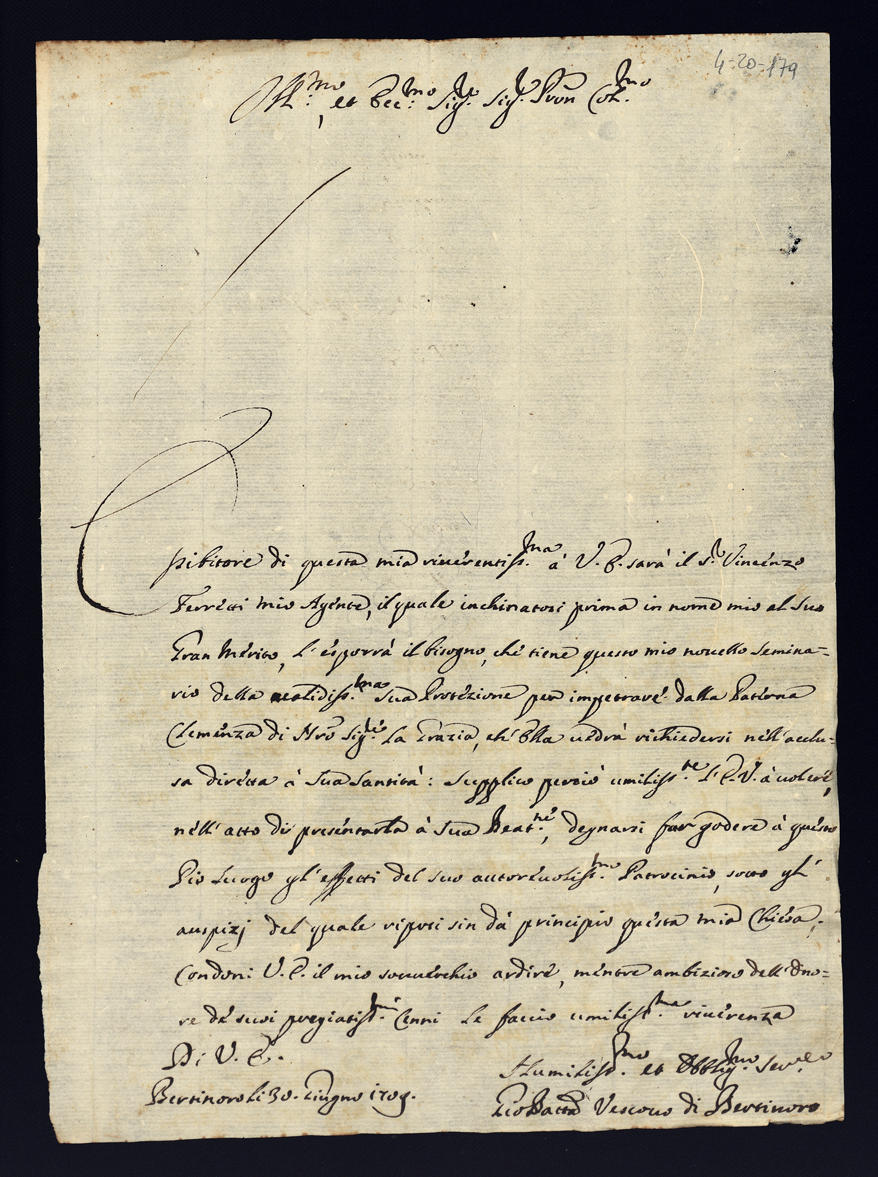 4-20-179
Ill.mo et Ecc.mo Sig.re Sig.re Pron Col.mo
Esibitore di questa mia riverentiss.ma à V. E. sarà il s.r Vincenzo
Ferretti mio Agente, il quale inchinatosi prima in nome mio al suo
Gran Merito, l'esporrà il bisogno, che tiene questo mio novello Semina=
rio della validiss.ma sua Protezione per impetrare dalla Paterna
Clemenza di Nrõ Sig.re la Grazia, ch'Ella vedrà richiedersi nell'acclu=
sa diretta à Sua Santità: Supplico perciò umiliss.te l'E. V. à volere,
nell'atto di presentarla à Sua Beat.ne, degnarsi far godere à questo
Pio Luogo gl'effetti del suo autorevoliss.mo Patrocinio, sotto gl'
auspizj del quale riposi sin dà principio questa mia Chiesa;
Condoni V. E. il mio soverchio ardire, mentre ambizioso dell'Ono=
re dè suoi pregiatiss.mi Cenni le faccio umiliss.ma riverenza
Di V. E.
Humiliss.mo et Obblig.mo Ser.re
Bertinoro li 30. Giugno 1709.
Gio Batta Vescovo di Bertinoro